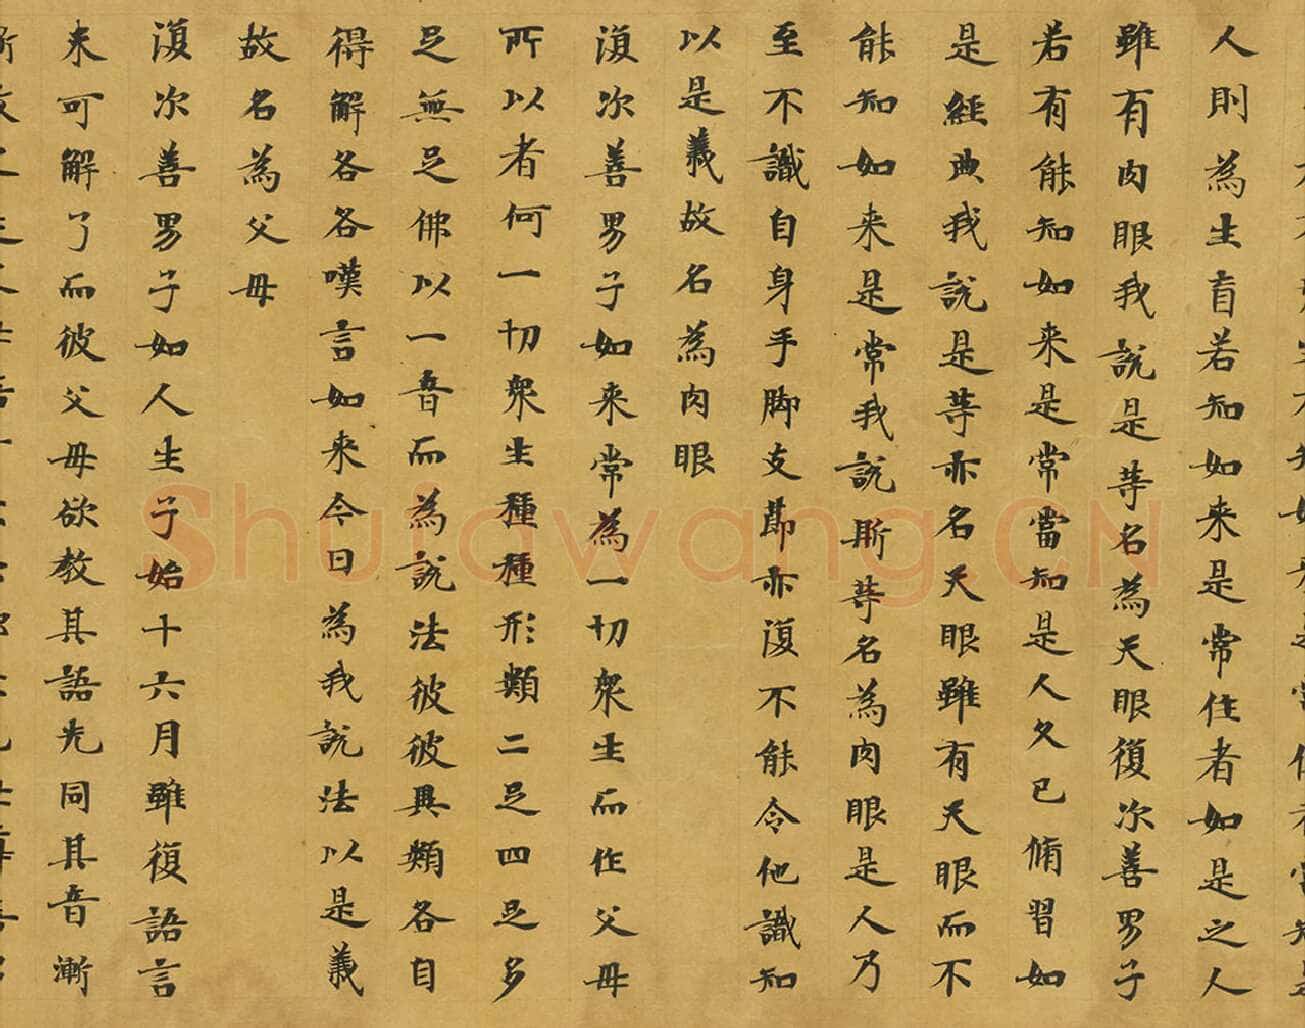 人則為生盲若知如来是常住者如是之人
雖有肉眼我說是等名為天眼復次善男子
若有能知如来是常當知是人久已脩習如
是經典我說是等亦名天眼雖有天眼而不
能知如来是常我說斯等名為肉眼是人乃
至不識自身手脚支節亦復不能令他識知
以是義故名為肉眼
復次善男子如来常為一切衆生而作父母
所以者何一切衆生種種形類二足四足多
足無足佛以一音而為說法彼彼異類各自
得解各各嘆言如来今日為我說法以是義
故名為父母
復次善男子如人生子始十六月雖復語言
未可解了而彼父母欲教其語先同其音漸
Shufawang.CN